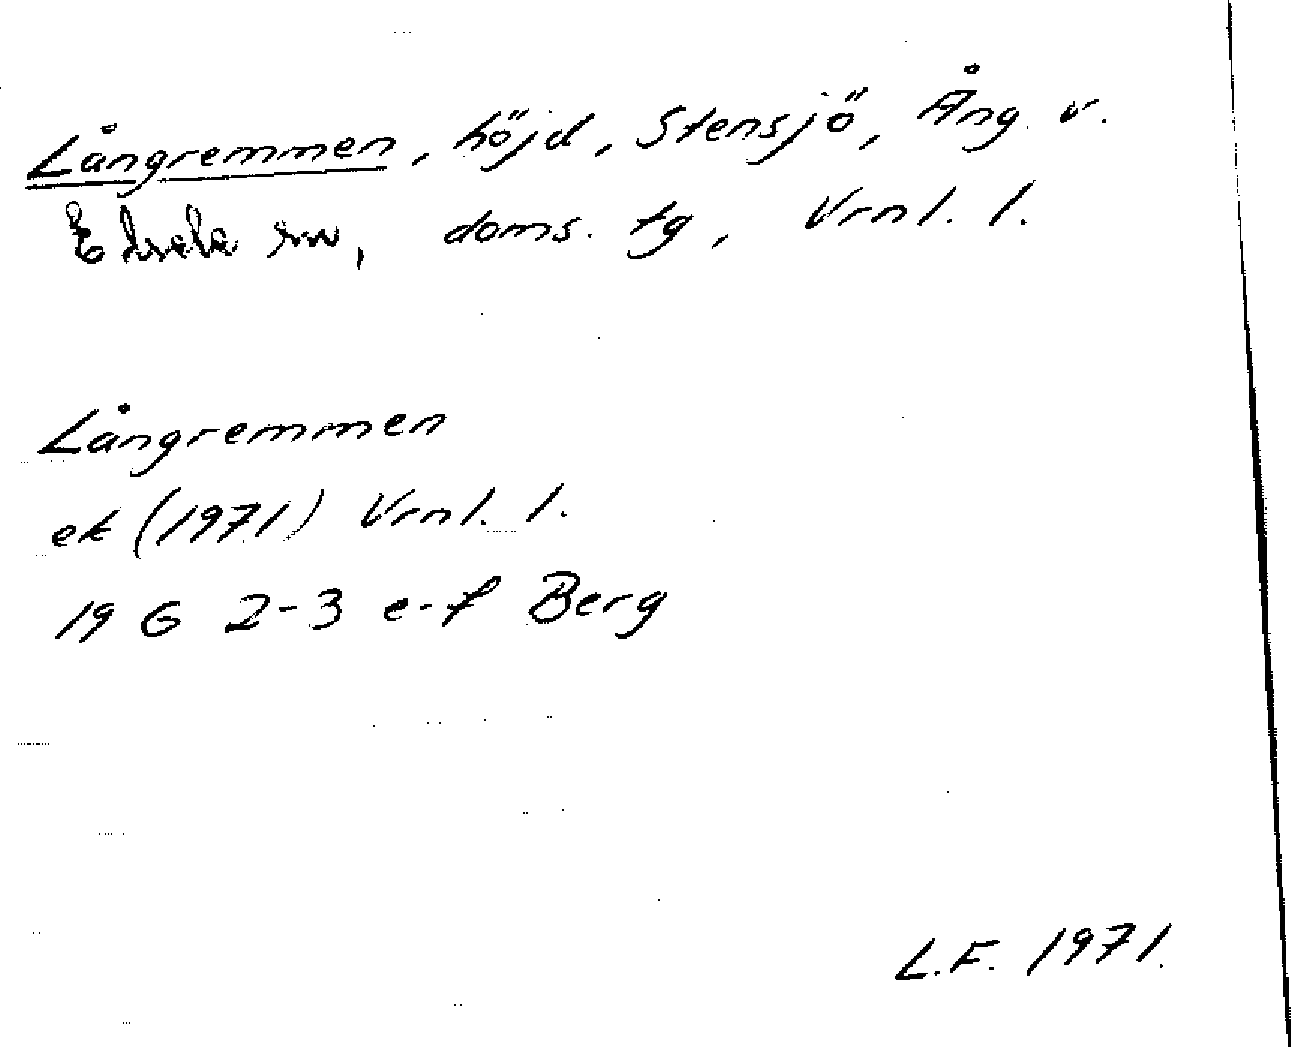 Långremmen, höjd, Stensjö, Ång. v.
Edsele sn, doms. tg, Vrnl. l.
Långremmen
ek (1971) Vrnl. l.
19 G 2-3 e-f Berg
L.F. 1971.